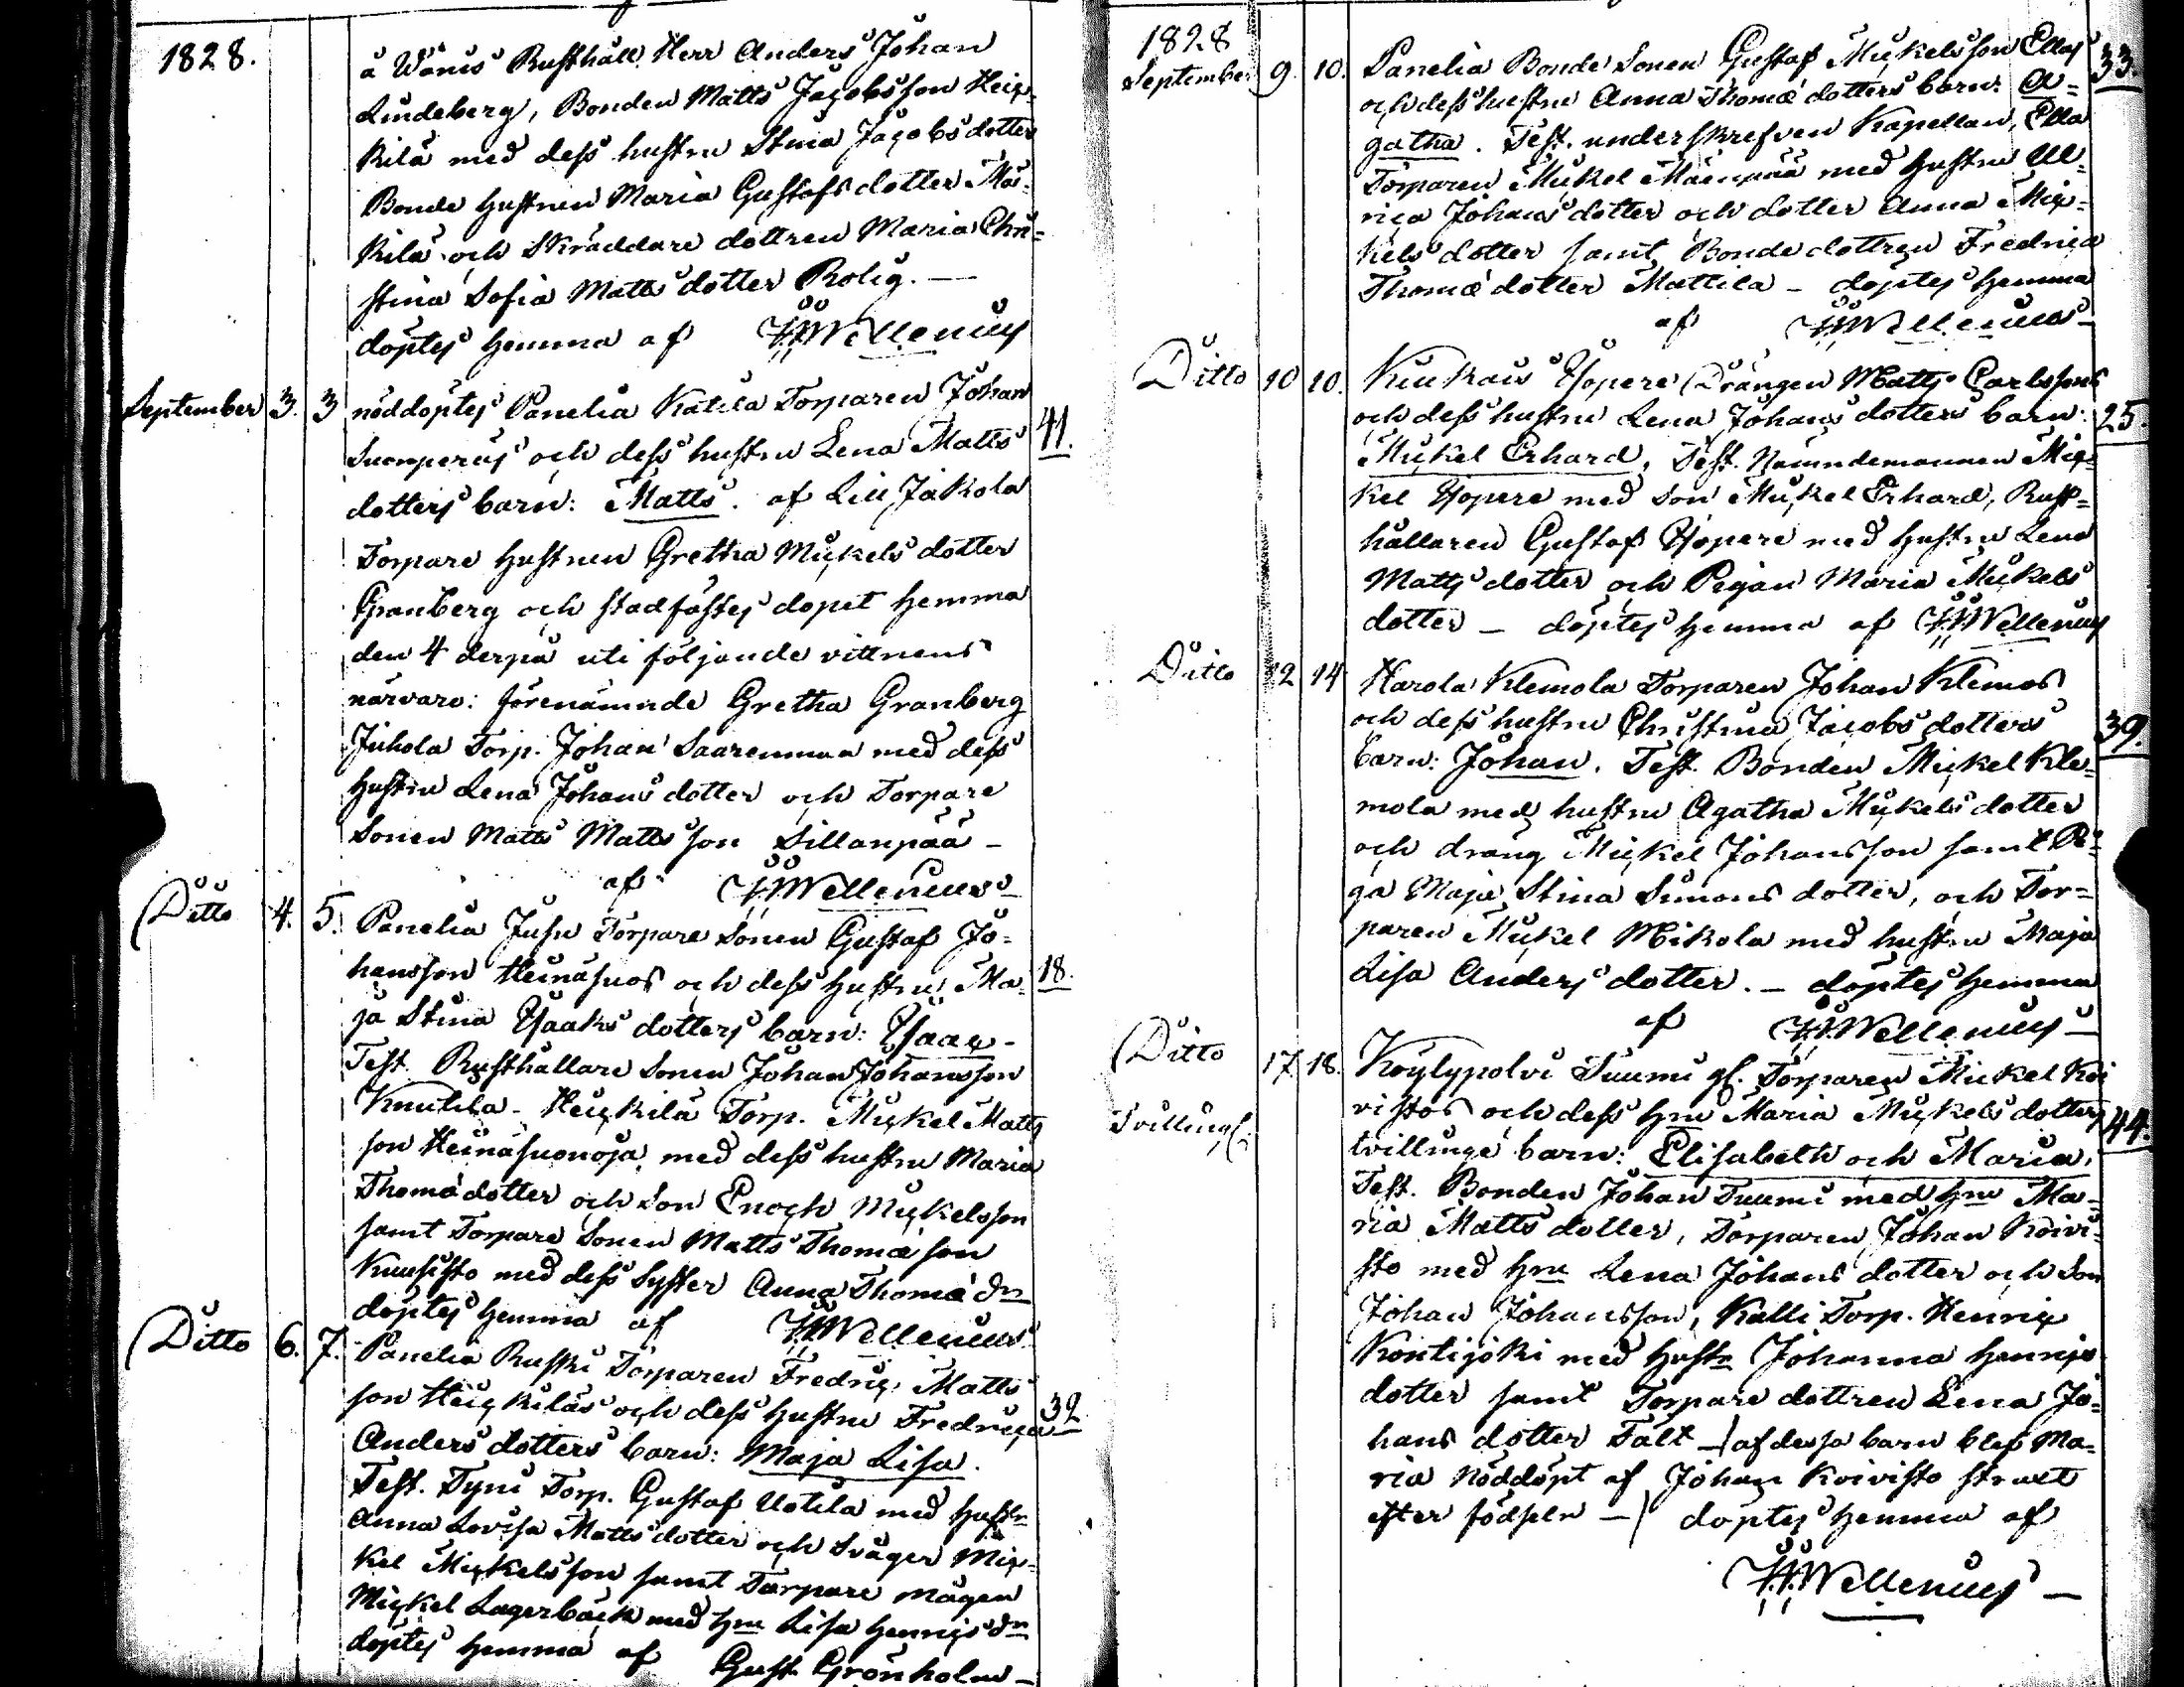 1828.
å Wånis Rusthåll Herr Anders Johan
Lindeberg, Bonden Matts Jacobsson Heic-
kilä med dess hustru Stina Jacobsdotter
Bonde hustrun Maria Gustafsdotter Mär-
kilä och Skräddare dottren Maria Chri-
stina Sofia Matts dotter Rolig. —
döptes hemma af H. Wellenius
September 3. 3 nöddöptes Panelia Katila Torparen Johan
Suonperäs och dess hustru Lena Matts 41.
dotters barn: Matts. af Lill Jakola
Torpare hustrun Gretha Mickels dotter
Granberg och stadfästes dopet hemma
den 4 derpå uti följande vittnens
närvaro: förenämnde Gretha Granberg
Juhola Torp. Johan Saarenmaa med dess
hustru Lena Johans dotter och Torpare
Sonen Matts Matts son Sillanpää —
af H. Wellenius —
Ditto 4. 5. Panelia Jusu Torpare Sonen Gustaf Jo-
hansson Heinäsuos och dess hustru Ma- 18.
ja Stina Isaaks dotters barn: Isaac -
Test. Rusthållare Sonen Johan Johansson
Knutila - Heickilä Torp. Mickel Matts
son Heinäsuonoja med dess hustru Maria
Thomædotter och Son Enoch Mickelsson
samt Torpare Sonen Matts Thomæ son
Kuusisto med dess Syster Anna Thomæ dr
döptes hemma af H. Wellenius
Ditto 6. 7. Panelia Ruski Torparen Fredric Matts
son Heickiläs och dess hustru Fredrica 32
Anders dotters barn: Maja Lisa.
Test. Tyni Torp. Gustaf Uotila med hustr
Anna Lovisa Matts dotter och Svåger Mic-
kel Mickelsson samt Torpare mågen
Mickel Lagerbäck med hru Lisa Henrics dr
döptes hemma af Gust. Grönholm —
1828
September 9. 10. Panelia Bonde Sonen Gustaf Mickelsson Ellas 33.
och dess hustru Anna Thomæ dotters barn: A-
gatha. Test. underskrefven Kapellan, Ella
Torparen Mickel Mäenpää med hustru Ul-
rica Johans dotter och dotter Anna Mic-
kels dotter samt Bonde dottren Fredrica
Thomæ dotter Mattila — döptes hemma
af H. Wellenius —
Ditto 10 10. Kiukais Yopere Drängen Matts Carlssons
och dess hustru Lena Johans dotters barn: 25.
Mickel Erhard. Test. Nämndemannen Mic-
kel Yopere med Son Mickel Erhard, Rust-
hållaren Gustaf Yopere med hustru Lena
Matts dotter och Pigan Maria Mickels
dotter — döptes hemma af H. Wellenius
Ditto 12 14 Harola Klemola Torparen Johan Klemos
och dess hustru Christina Jacobs dotters 39.
barn: Johan. Test. Bonden Mickel Kle-
mola med hustru Agatha Mickels dotter
och dräng Mickel Johansson samt Pi-
ga Maja Stina Simons dotter, och Tor-
paren Mickel Mikola med hustru Maja
Lisa Anders dotter. — döptes hemma
af H. Wellenius —
Ditto 17. 18. Köylypolvi Tuumi gl. Torparen Mickel Koi
vistos och dess hru Maria Mickels dotters 44.
Tvilling
tvillinge barn: Elisabeth och Maria.
Test. Bonden Johan Tuumi med hru Ma-
ria Matts dotter, Torparen Johan Koivi-
sto med hru Lena Johans dotter och Son
Johan Johansson, Kalli Torp. Henric
Kontijoki med hustr Johanna Henrics
dotter samt Torpare dottren Lena Jo-
hans dotter Fält —/ af dessa barn blef Ma-
ria nöddöpt af Johan Koivisto straxt
efter födseln —/ döptes hemma af
H. Wellenius —